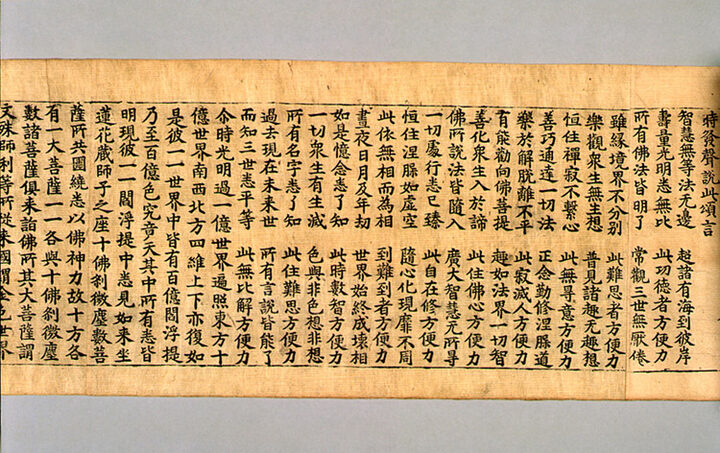 時發聲說此頌言
智慧無等法无邊 超諸有海到彼岸
壽量光明悉無比 此功德者方便力
所有佛法皆明了 常觀三世無厭倦
雖緣境界不分別 此難思者方便力
樂觀衆生無生想 普見諸趣无趣想
恒住禪寂不繫心 此無㝵慧方便力
善巧通達一切法 正念勤修涅槃道
樂於解脫離不平 此寂滅人方便力
有能勸向佛菩提 趣如法界一切智
善化衆生入於諦 此住佛心方便力
佛所說法皆隨入 廣大智慧无所㝵
一切處行悉已臻 此自在修方便力
恒住涅槃如虛空 隨心化現靡不周
此依無相而為相 到難到者方便力
晝夜日月及年劫 世界始終成壞相
如是憶念悉了知 此時數智方便力
一切衆生有生滅 色與非色想非想
所有名字悉了知 此住難思方便力
過去現在未來世 所有言說皆能了
而知三世悉平等 此無比解方便力
尒時光明過一億世界遍照東方十
億世界南西北方四維上下亦復如
是彼一一世界中皆有百億閻浮提
乃至百億色究竟天其中所有悉皆
明現彼一一閻浮提中悉見如來坐
蓮花藏師子之座十佛剎微塵數菩
薩所共圍繞悉以佛神力故十方各
有一大菩薩一一各與十佛剎微塵
數諸菩薩俱来詣佛所其大菩薩謂
文殊師利等所從来國謂金色世界